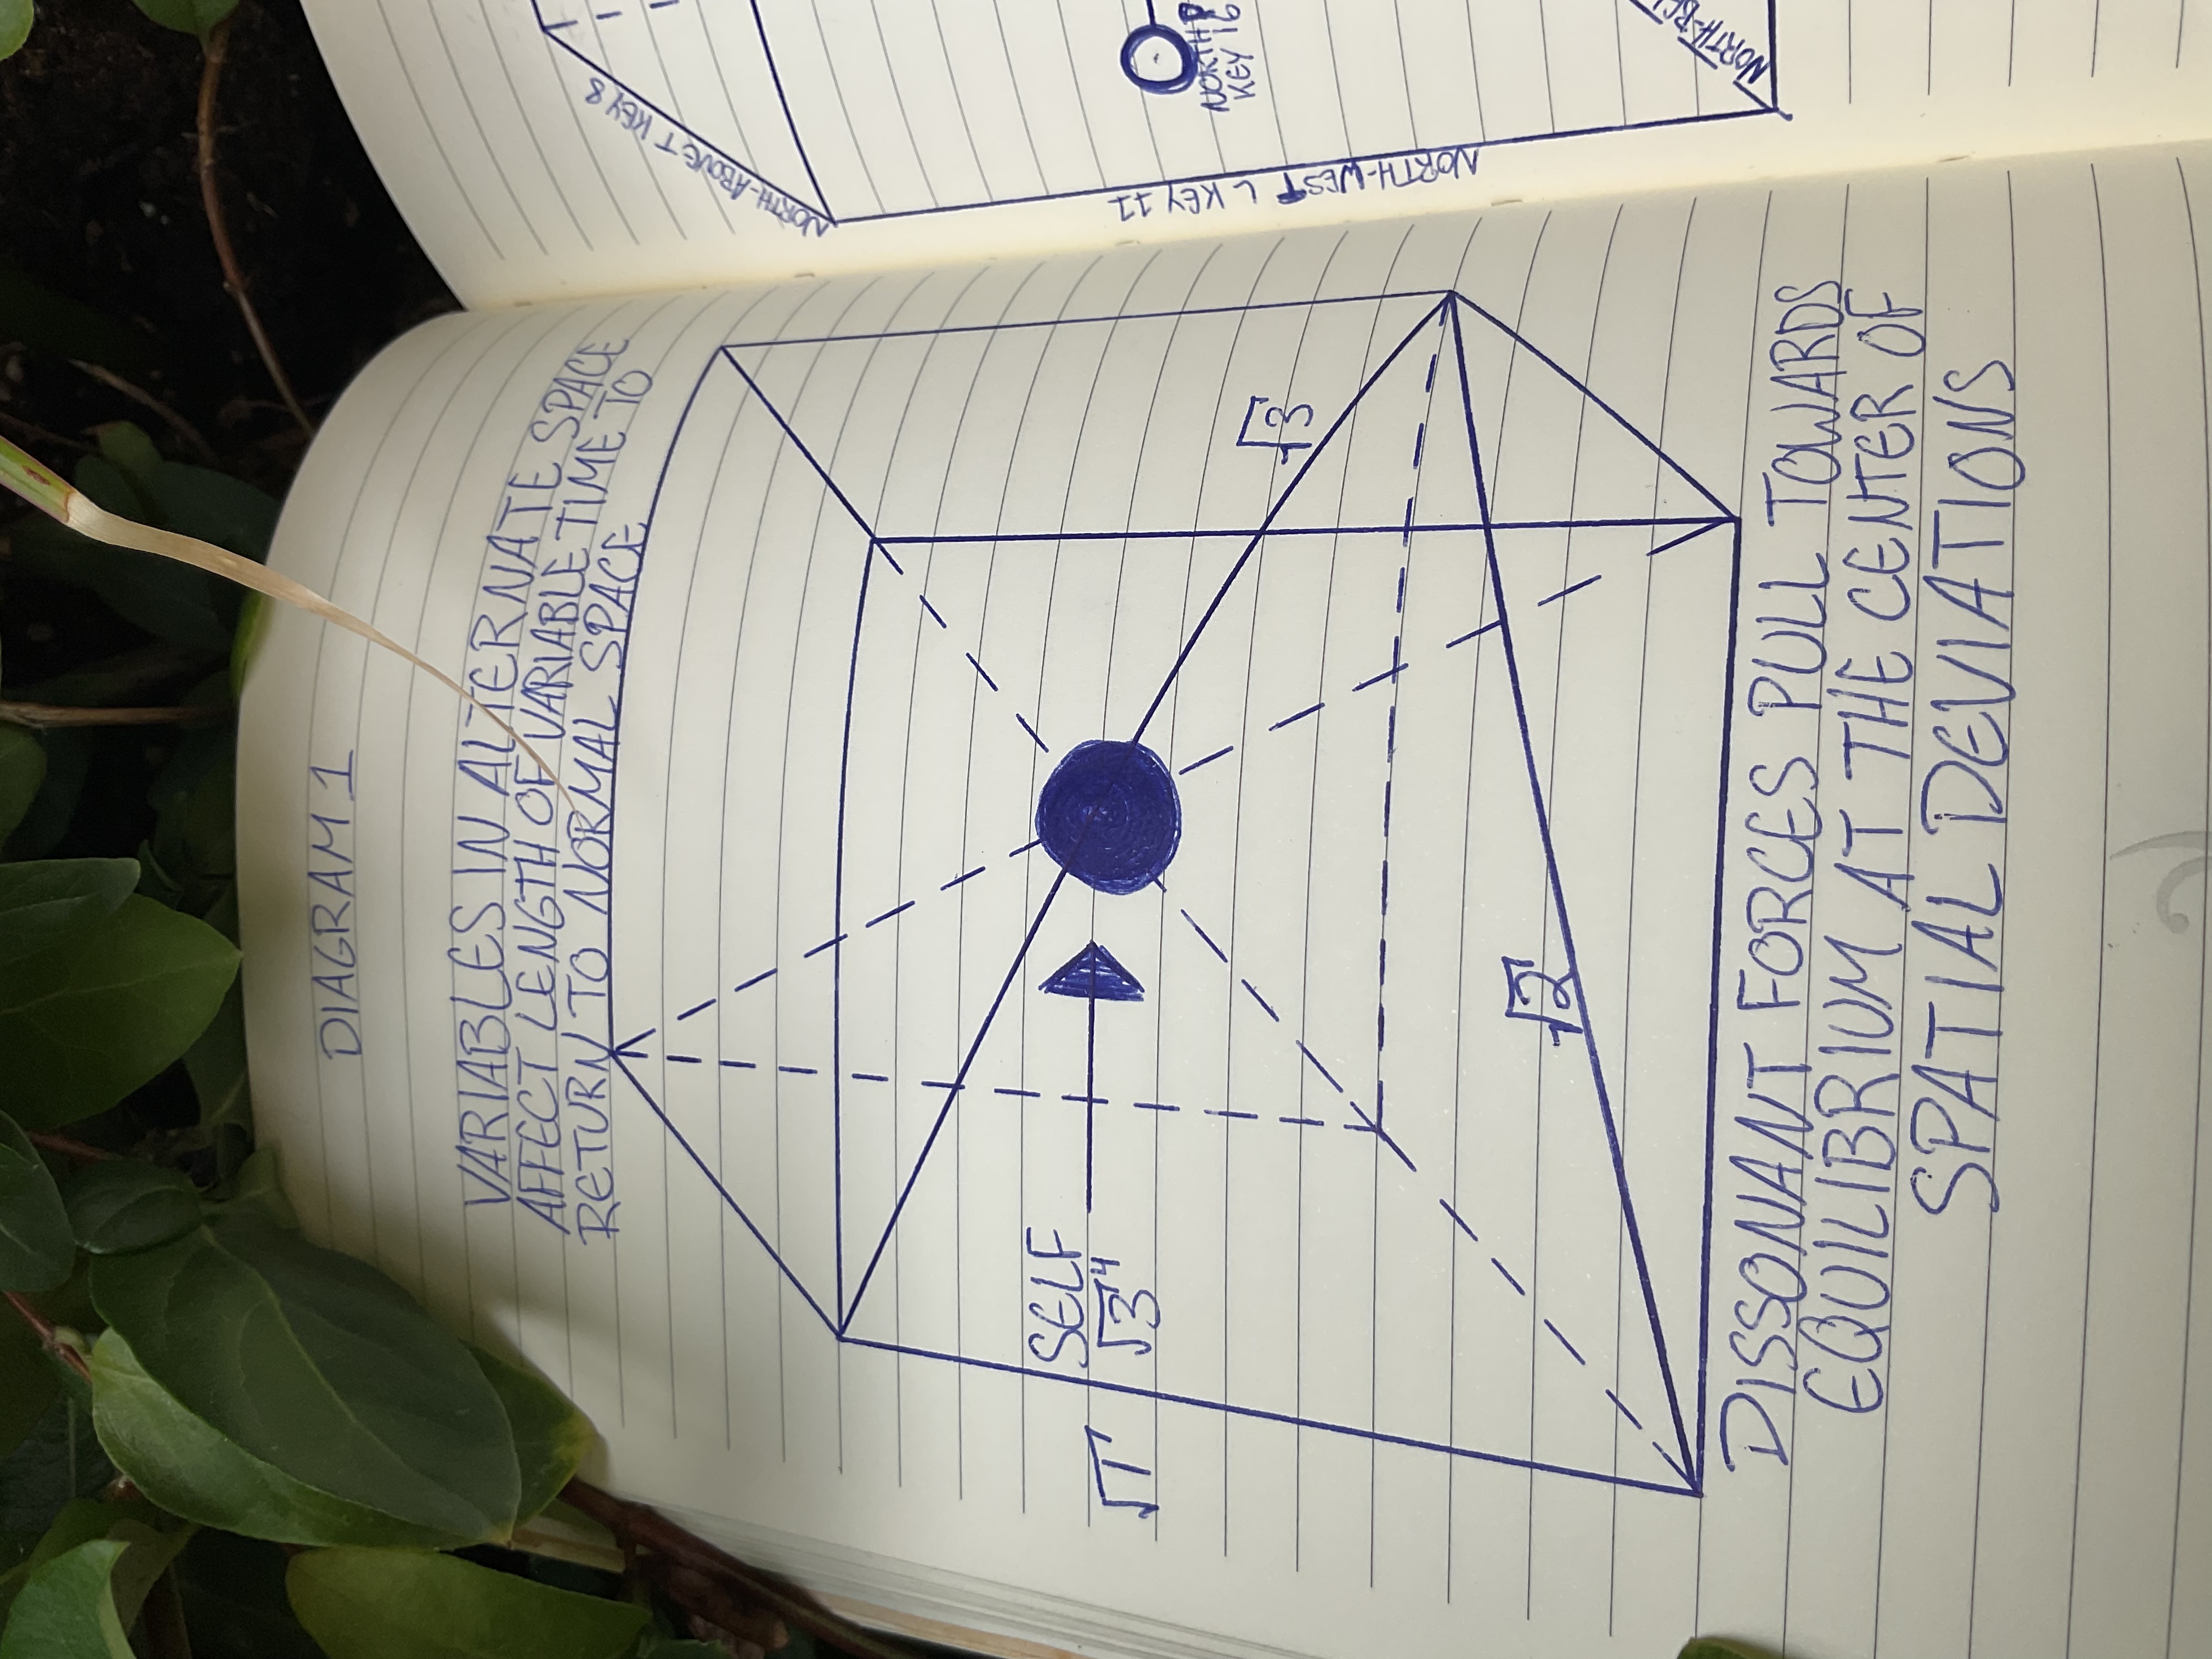 DIAGRAM 1
VARIABLES IN ALTERNATE SPACE
AFFECT LENGTH OF VARIABLE TIME TO
RETURN TO NORMAL SPACE
SELF
√1
√3⁴
√3
√2
DISSONANT FORCES PULL TOWARDS
EQUILIBRIUM AT THE CENTER OF
SPATIAL DEVIATIONS
NORTH-ABOVE T KEY 8
NORTH-WEST L KEY 11
NORTH P
KEY 16